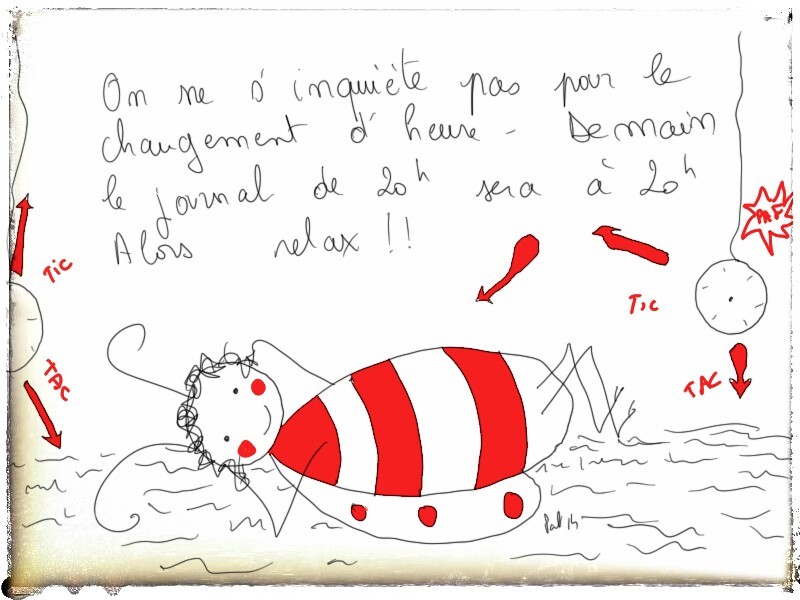 On ne s'inquiète pas pour le
changement d'heure - Demain
le journal de 20h sera à 20h
Alors relax !!
PAF
TIC
TIC
TAC
TAC